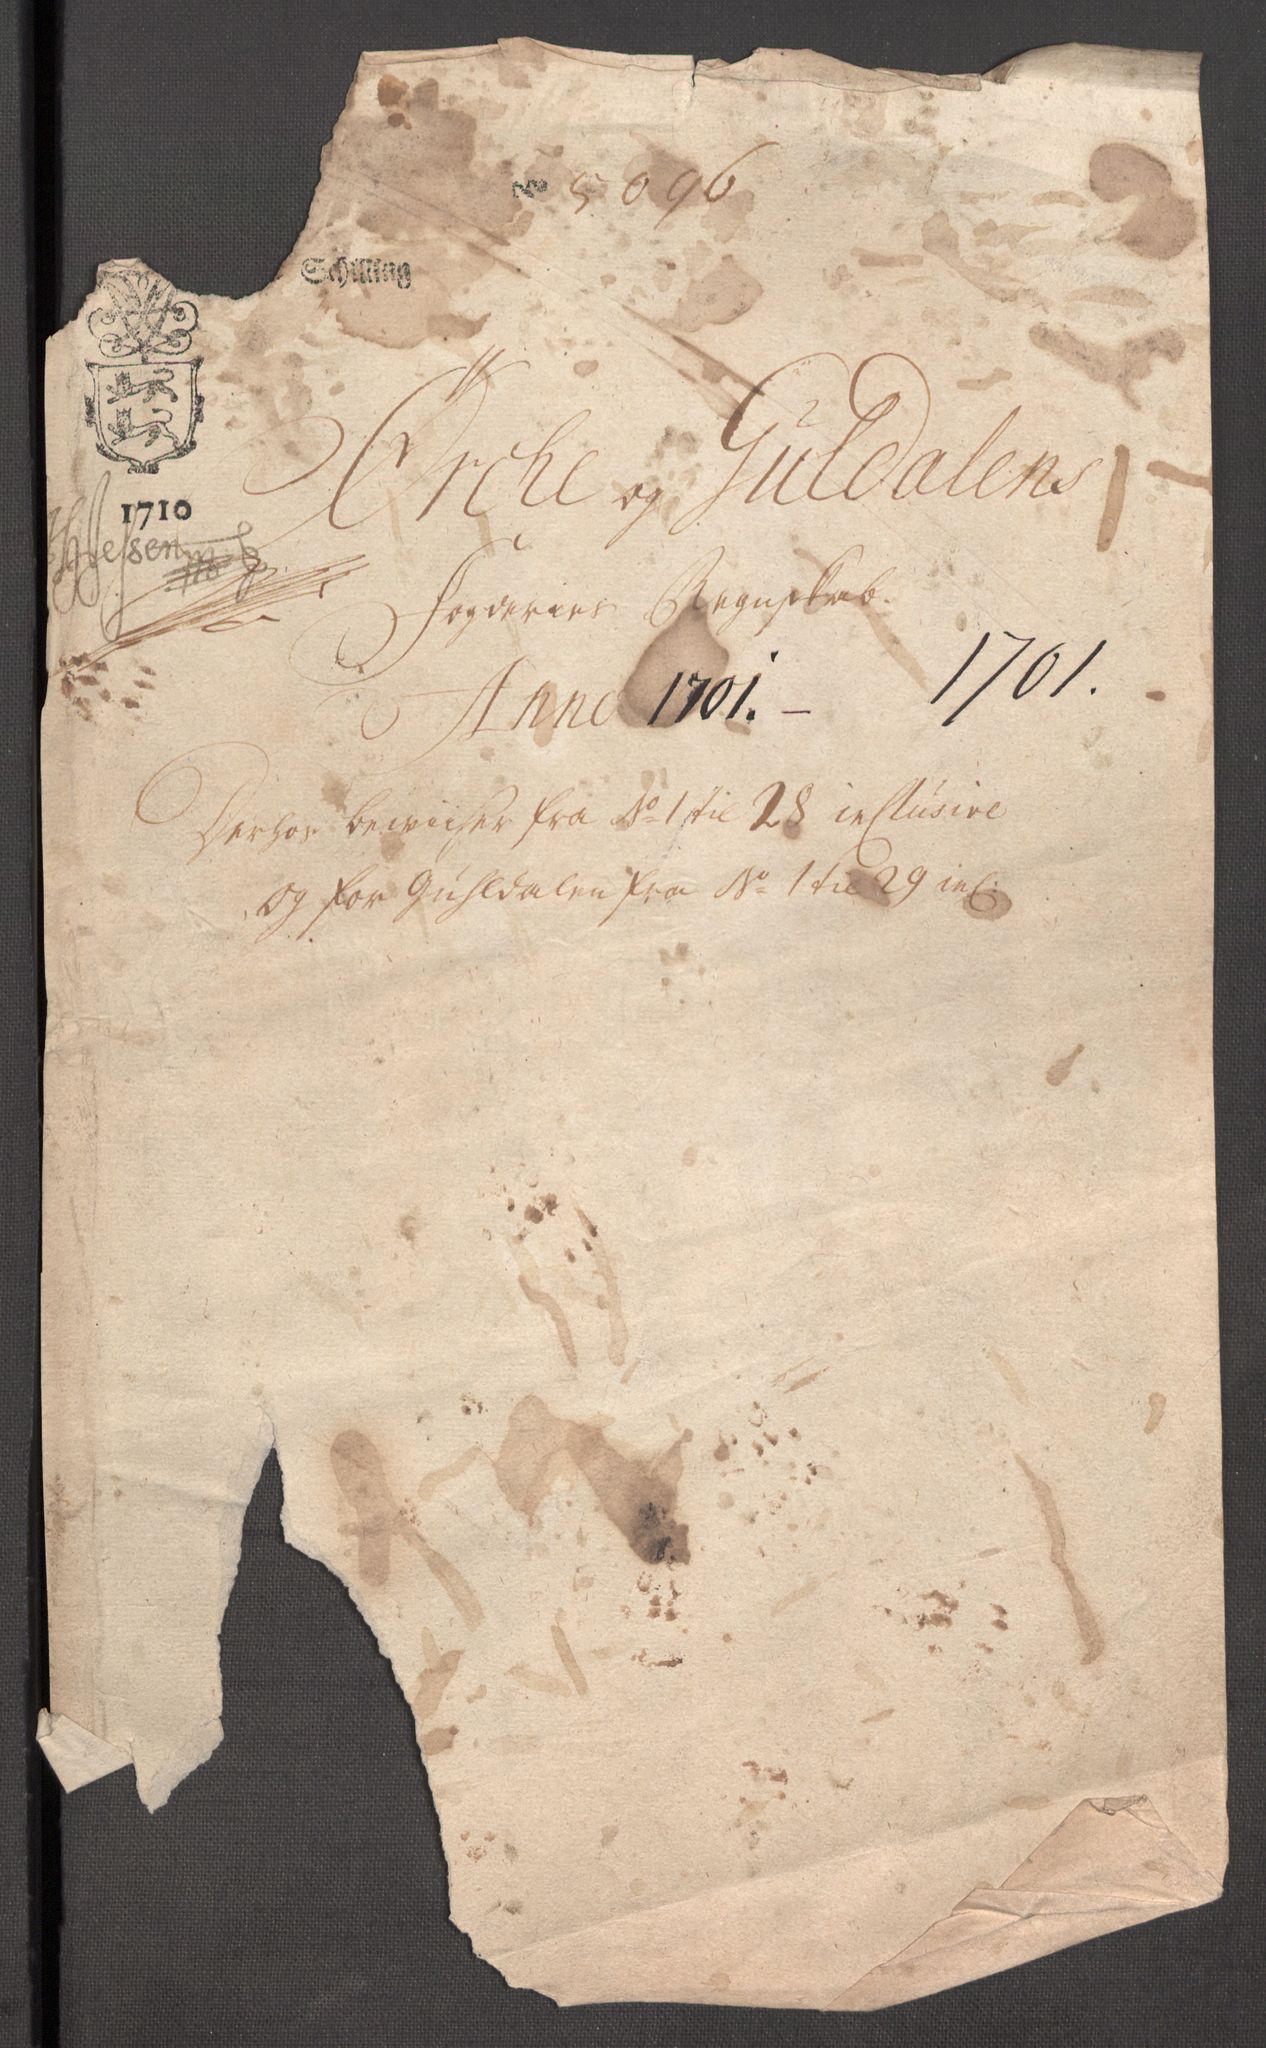 No 5096
Schilling
Ørche og Guldalens
1710
HJessen
Fogderies Regnskab.
Anno 1701. – 1701.
Derhos bewiiser fra No 1 til 28 inclusive
og for Guhldalen fra No 1 til 29 incl: